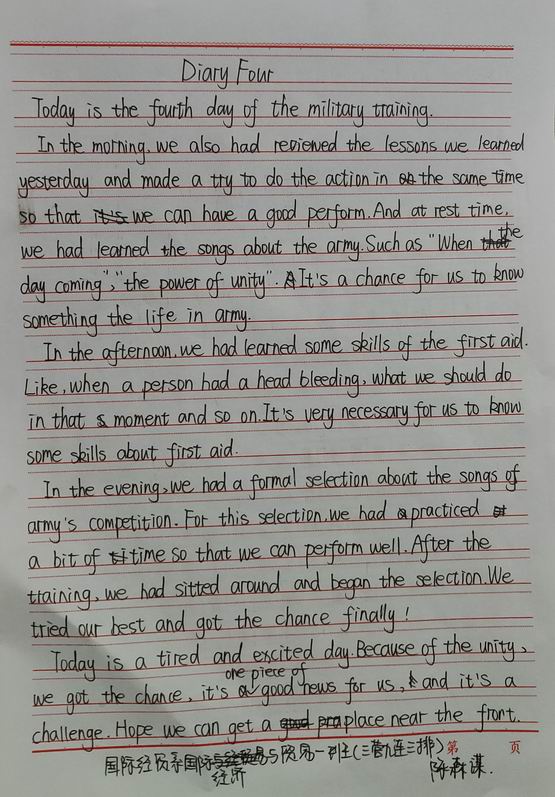 Diary Four
Today is the fourth day of the military training.
In the morning, we also had reviewed the lessons we learned
yesterday and made a try to do the action in the same time
so that we can have a good perform. And at rest time,
we had learned the songs about the army. Such as "When the
day coming", "the power of unity". It's a chance for us to know
something the life in army.
In the afternoon, we had learned some skills of the first aid.
Like, when a person had a head bleeding, what we should do
in that moment and so on. It's very necessary for us to know
some skills about first aid.
In the evening, we had a formal selection about the songs of
army's competition. For this selection, we had practiced
a bit of time so that we can perform well. After the
training, we had sitted around and began the selection. We
tried our best and got the chance finally!
Today is a tired and excited day. Because of the unity,
we got the chance, it's one piece of good news for us, and it's a
challenge. Hope we can get a place near the front.
国际经贸系国际经济与贸易一班(三营九连三排) 第 页
陈森谋.